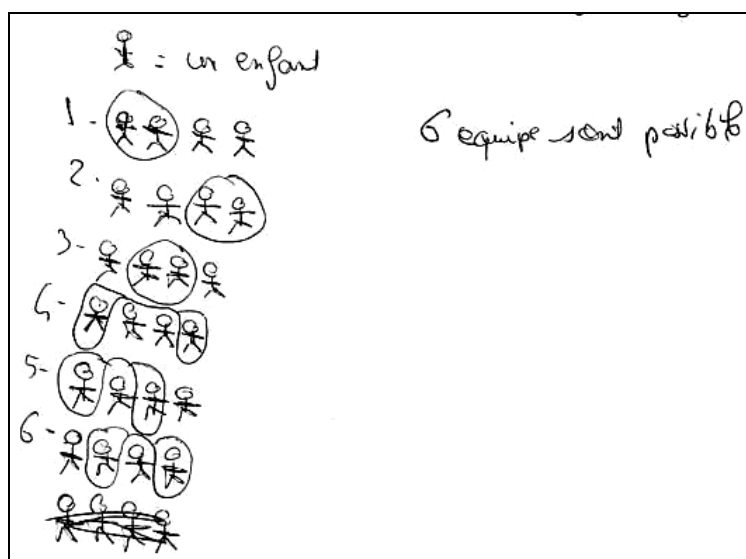 = un enfant
1-
6 equipe sont possible
2-
3-
4-
5-
6-